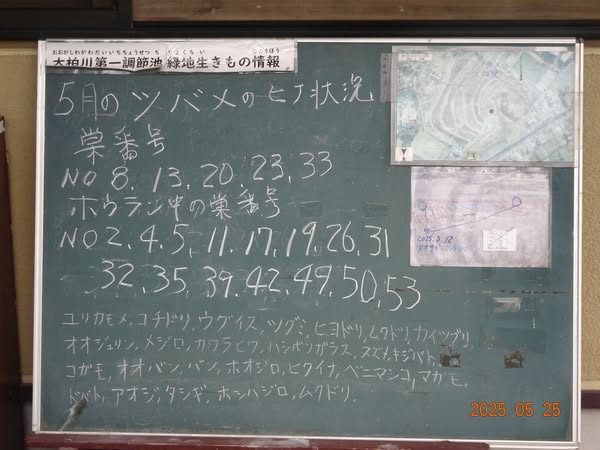 おおがしわがわだいいちちょうせつち りょくちい じょうほう
大柏川第一調節池 緑地生きもの情報
5月のツバメのヒナ状況
巣番号
NO 8. 13. 20. 23. 33
ホウラン中の巣番号
NO2.4.5,11.17.19.26.31
32.35.39.42.49.50.53
ユリカモメ,コチドリ,ウグイス,ツグミ,ヒヨドリ,ムクドリ,カイツブリ,
オオジュリン,メジロ,カワラヒワ,ハシボソガラス,スズメ,キジバト,
コガモ,オオバン,バン,ホオジロ,ヒクイナ,ベニマシコ,マガモ,
ドバト,アオジ,タシギ,ホシハジロ,ムクドリ.
2025 05 25